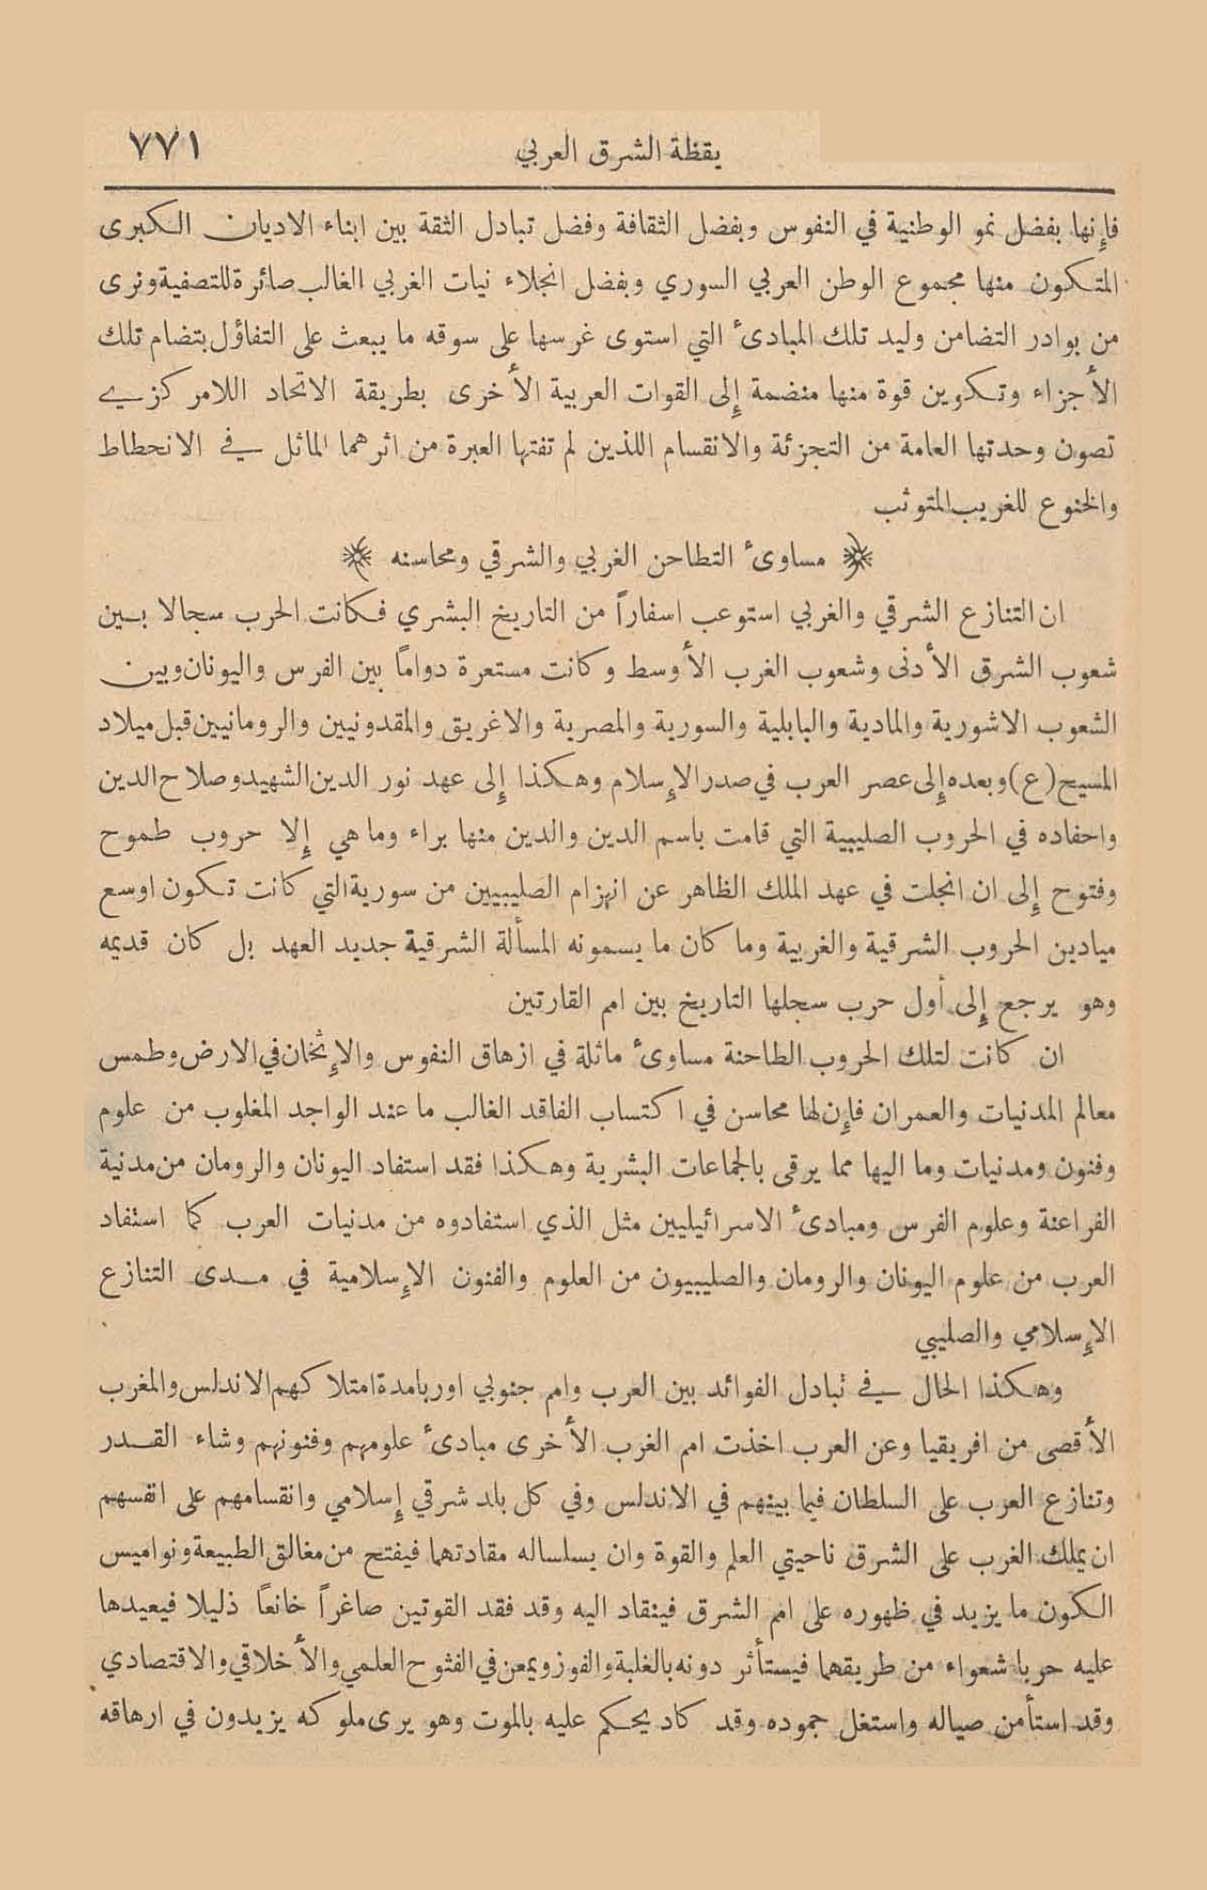 يقظة الشرق العربي ٧٧١
فإنها بفضل نمو الوطنية في النفوس وبفضل الثقافة وفضل تبادل الثقة بين ابناء الاديان الكبرى
المتكون منها مجموع الوطن العربي السوري وبفضل انجلاء نيات الغربي الغالب صائرة للتصفية ونرى
من بوادر التضامن وليد تلك المبادئ التي استوى غرسها على سوقه ما يبعث على التفاؤل بتضام تلك
الأجزاء وتكوين قوة منها منضمة إلى القوات العربية الأخرى بطريقة الاتحاد اللامركزي
تصون وحدتها العامة من التجزئة والانقسام اللذين لم تفتها العبرة من اثرهما الماثل في الانحطاط
والخنوع للغريب المتوثب
﴿ مساوئ التطاحن الغربي والشرقي ومحاسنه ﴾
ان التنازع الشرقي والغربي استوعب اسفاراً من التاريخ البشري فكانت الحرب سجالا بين
شعوب الشرق الأدنى وشعوب الغرب الأوسط وكانت مستعرة دواماً بين الفرس واليونان وبين
الشعوب الاشورية والمادية والبابلية والسورية والمصرية والاغريق والمقدونيين والرومانيين قبل ميلاد
المسيح (ع) وبعده إلى عصر العرب في صدر الإسلام وهكذا إلى عهد نور الدين الشهيد وصلاح الدين
واحفاده في الحروب الصليبية التي قامت باسم الدين والدين منها براء وما هي إلا حروب طموح
وفتوح إلى ان انجلت في عهد الملك الظاهر عن انهزام الصليبيين من سورية التي كانت تكون اوسع
ميادين الحروب الشرقية والغربية وما كان ما يسمونه المسألة الشرقية جديد العهد بل كان قديمه
وهو يرجع إلى أول حرب سجلها التاريخ بين امم القارتين
ان كانت لتلك الحروب الطاحنة مساوئ ماثلة في ازهاق النفوس والإثخان في الارض وطمس
معالم المدنيات والعمران فإن لها محاسن في اكتساب الفاقد الغالب ما عند الواجد المغلوب من علوم
وفنون ومدنيات وما اليها مما يرقى بالجماعات البشرية وهكذا فقد استفاد اليونان والرومان من مدنية
الفراعنة وعلوم الفرس ومبادئ الاسرائيليين مثل الذي استفادوه من مدنيات العرب كما استفاد
العرب من علوم اليونان والرومان والصليبيون من العلوم والفنون الإسلامية في مدى التنازع
الإسلامي والصليبي
وهكذا الحال في تبادل الفوائد بين العرب وامم جنوبي اوربا مدة امتلاكهم الاندلس والمغرب
الأقصى من افريقيا وعن العرب اخذت امم الغرب الأخرى مبادئ علومهم وفنونهم وشاء القدر
وتنازع العرب على السلطان فيما بينهم في الاندلس وفي كل بلد شرقي إسلامي وانقسامهم على انفسهم
ان يملك الغرب على الشرق ناحيتي العلم والقوة وان يسلساله مقادتهما فيفتح من مغالق الطبيعة ونواميس
الكون ما يزيد في ظهوره على امم الشرق فينقاد اليه وقد فقد القوتين صاغراً خانعاً ذليلا فيعيدها
عليه حربا شعواء من طريقهما فيستأثر دونه بالغلبة والفوز ويمعن في الفتوح العلمي والأخلاقي والاقتصادي
وقد استأمن صياله واستغل جموده وقد كاد يحكم عليه بالموت وهو يرى ملوكه يزيدون في ارهاقه